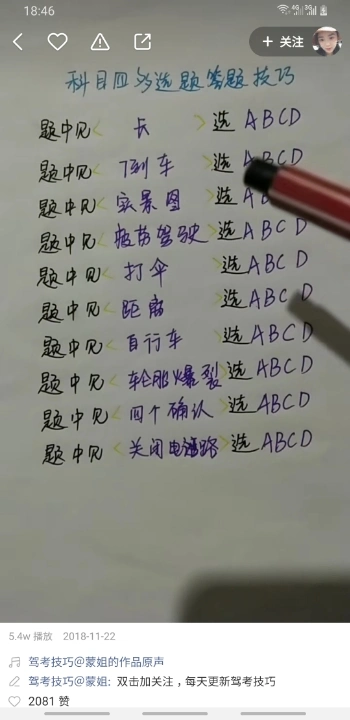 18:46
+ 关注
科目四多选题答题技巧
题中见<长>选ABCD
题中见<倒车>选ABCD
题中见<实景图>选AB
题中见<疲劳驾驶>选ABCD
题中见<打伞>选ABCD
题中见<距离>选ABCD
题中见<自行车>选ABCD
题中见<轮胎爆裂>选ABCD
题中见<四个确认>选ABCD
题中见<关闭电路>选ABCD
5.4w 播放 2018-11-22
驾考技巧@蒙姐的作品原声
驾考技巧@蒙姐: 双击加关注,每天更新驾考技巧
2081 赞